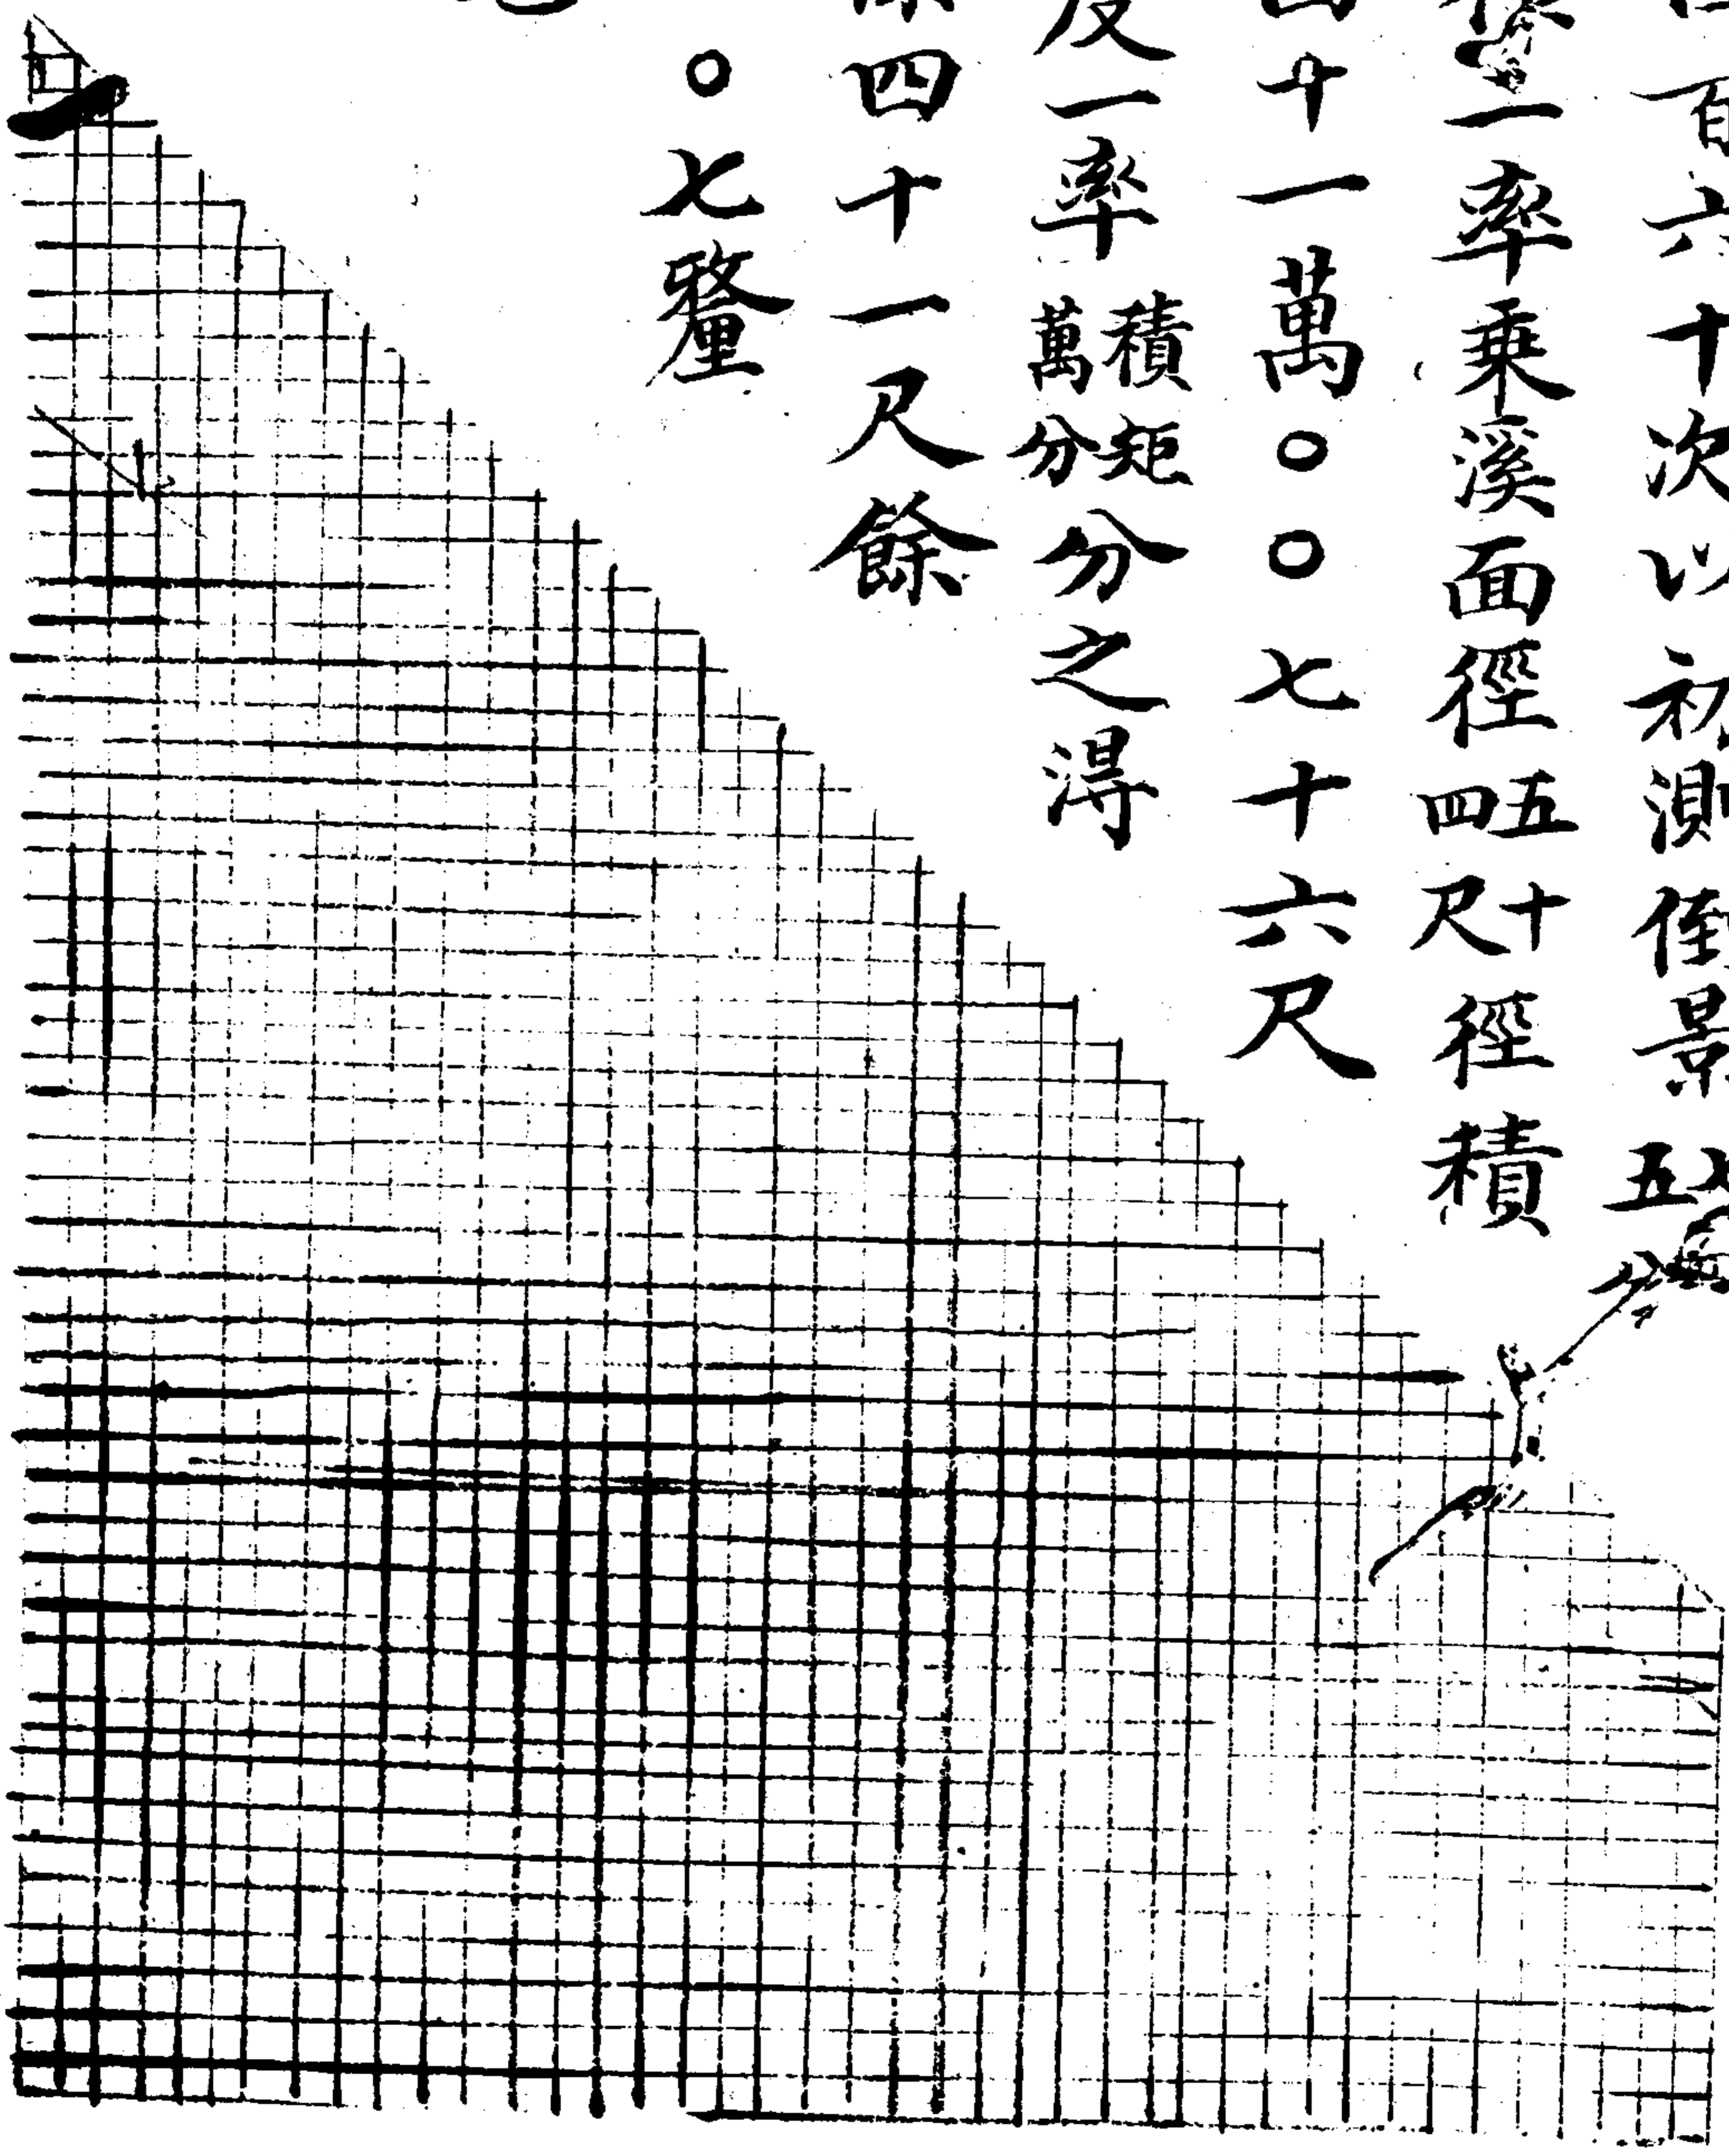 百六十次以初測倒景五
二率乘溪面徑五十四尺徑積
十一萬〇〇七十六尺
一率積矩萬分分之得
四十一尺餘
〇七釐